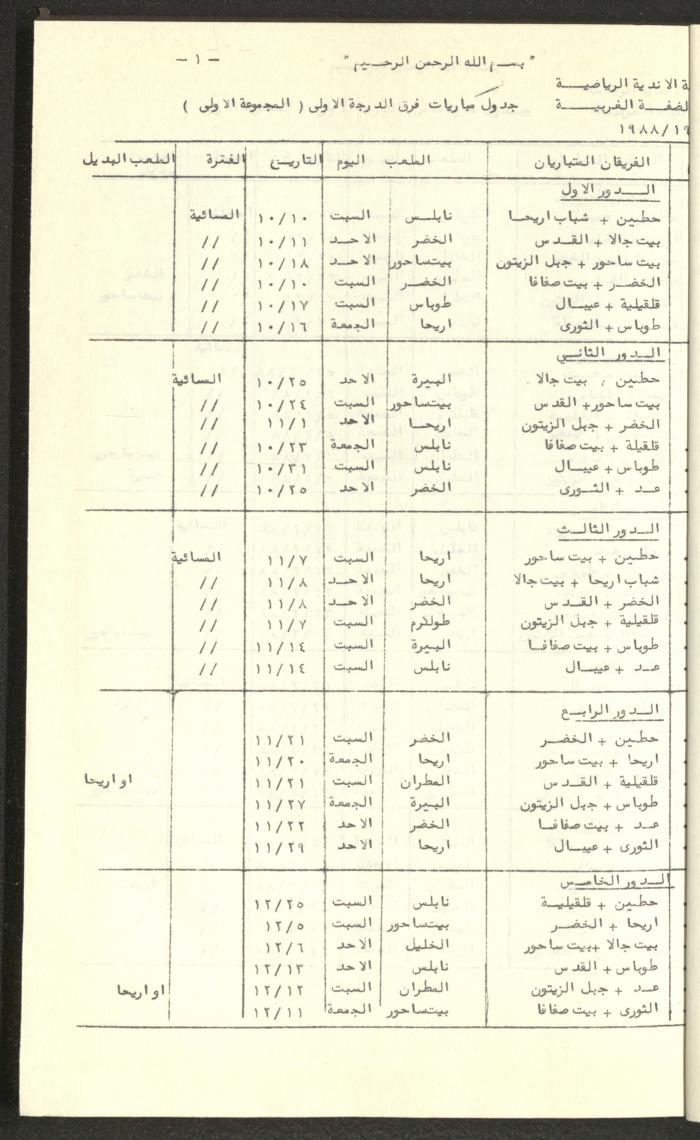 - ١ -
" بسم الله الرحمن الرحيم "
ة الاندية الرياضية
لضفة الغربية
جدول مباريات فرق الدرجة الاولى ( المجموعة الاولى )
١٩٨٨/١٩
الفريقان المتباريان الملعب اليوم التاريخ الفترة الملعب البديل
الدور الاول
حطين + شباب اريحا نابلس السبت ١٠/١٠ المسائية
بيت جالا + القدس الخضر الاحد ١٠/١١ //
بيت ساحور + جبل الزيتون بيتساحور الاحد ١٠/١٨ //
الخضر + بيت صفافا الخضر السبت ١٠/١٠ //
قلقيلية + عيبال طوباس السبت ١٠/١٧ //
طوباس + الثورى اريحا الجمعة ١٠/١٦ //
الدور الثاني
حطين ، بيت جالا . البيرة الاحد ١٠/٢٥ المسائية
بيت ساحور+ القدس بيتساحور السبت ١٠/٢٤ //
الخضر + جبل الزيتون اريحا الاحد ١١/١ //
قلقيلة + بيت صفافا نابلس الجمعة ١٠/٢٣ //
طوباس + عيبال نابلس السبت ١٠/٣١ //
عد + الثورى الخضر الاحد ١٠/٢٥ //
الدور الثالث
حطين + بيت ساحور اريحا السبت ١١/٧ المسائية
شباب اريحا + بيت جالا اريحا الاحد ١١/٨ //
الخضر + القدس الخضر الاحد ١١/٨ //
قلقيلية + جبل الزيتون طولكرم السبت ١١/٧ //
طوباس + بيت صفافا البيرة السبت ١١/١٤ //
عد + عيبال نابلس السبت ١١/١٤ //
الدور الرابع
حطين + الخضر الخضر السبت ١١/٢١
اريحا + بيت ساحور اريحا الجمعة ١١/٢٠
قلقيلية + القدس المطران السبت ١١/٢١ او اريحا
طوباس + جبل الزيتون البيرة الجمعة ١١/٢٧
عد + بيت صفافا الخضر الاحد ١١/٢٢
الثورى + عيبال اريحا الاحد ١١/٢٩
الدور الخامس
حطين + قلقيلية نابلس السبت ١٢/٢٥
اريحا + الخضر بيتساحور السبت ١٢/٥
بيت جالا +بيت ساحور الخليل الاحد ١٢/٦
طوباس + القدس نابلس الاحد ١٢/١٣
عد + جبل الزيتون المطران السبت ١٢/١٢ او اريحا
الثورى + بيت صفافا بيتساحور الجمعة ١٢/١١